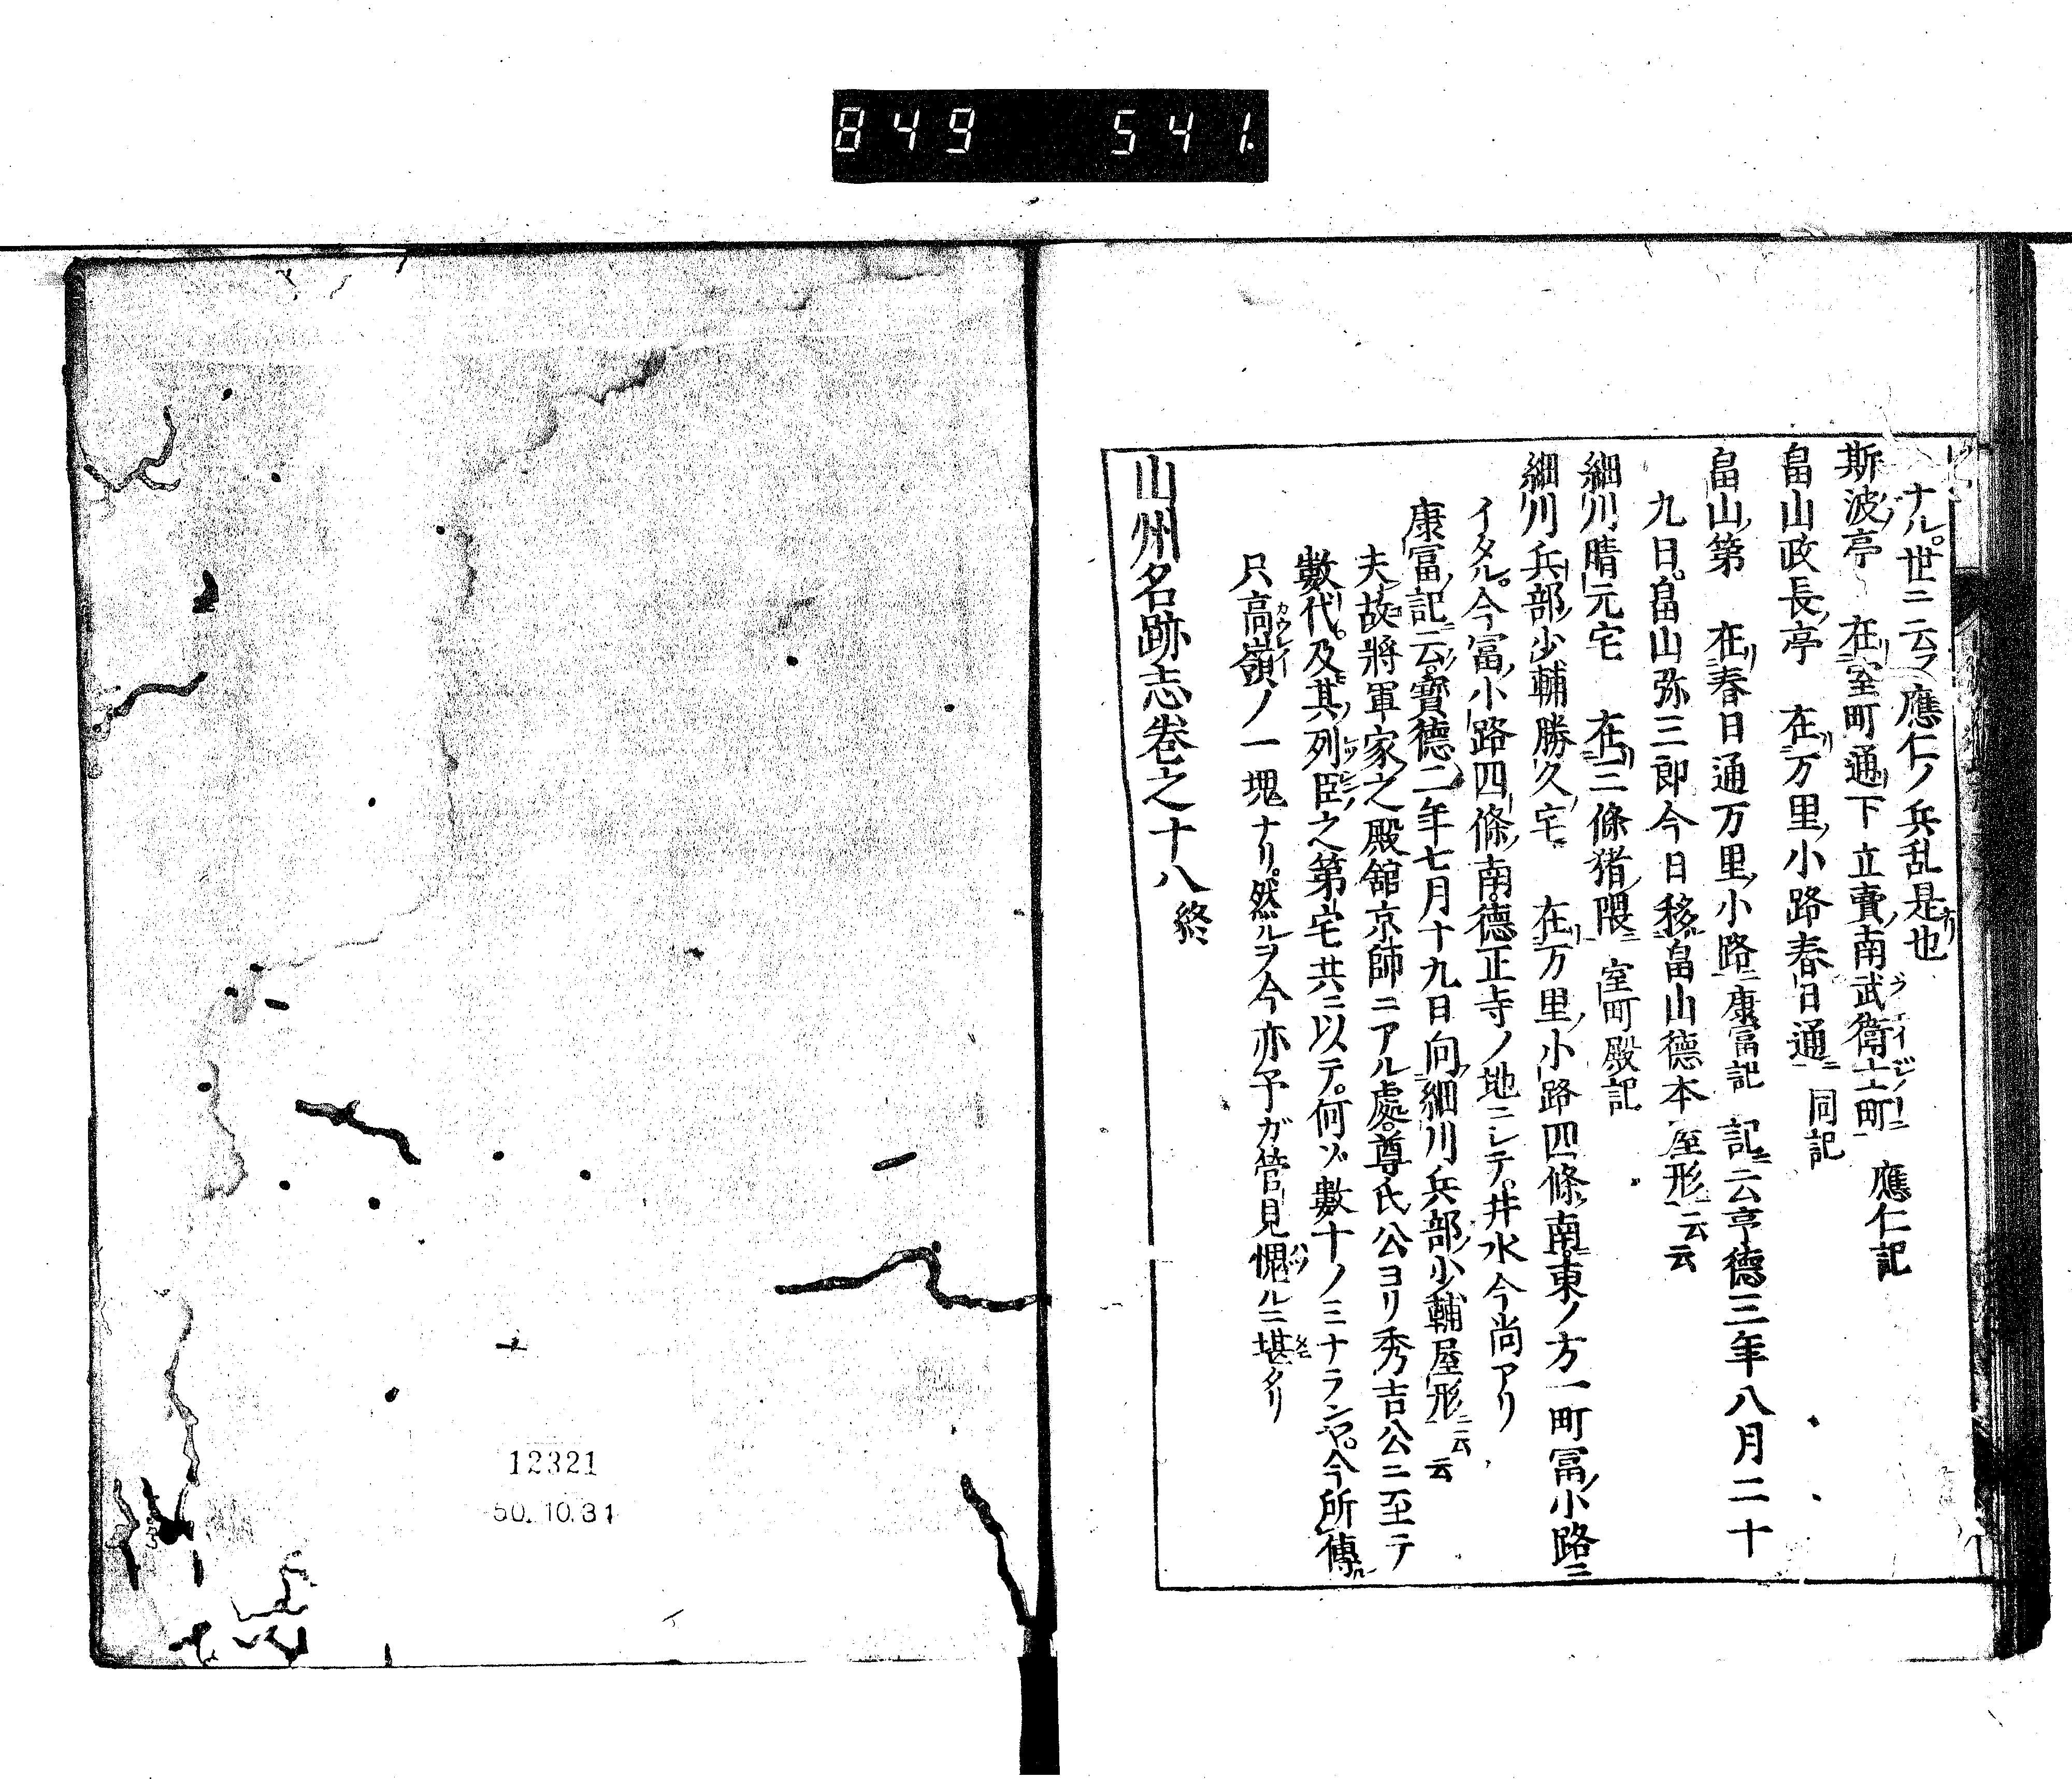 849 541
ナル。世ニ云フ應仁ノ兵乱是也
斯波ノ亭 在室町通下立賣南武衛士町 應仁記
畠山政長ノ亭 在万里ノ小路春日通 同記
畠山ノ第 在春日通万里ノ小路 康冨記 記ニ云亨德三年八月二十
九日。畠山弥三郎今日移畠山德本屋形云云
細川晴元宅 在三條猪隈 室町殿記
細川兵部ノ少輔勝久ノ宅 在万里ノ小路四條ノ南東ノ方一町冨ノ小路ニ
イタル。今冨ノ小路四條ノ南。德正寺ノ地ニシテ。井水今尚アリ
康冨ノ記ニ云。寶德二年七月十九日向細川兵部ノ少輔屋形云云
夫故將軍家之殿舘京師ニアル處。尊氏公ヨリ秀吉公ニ至テ
數代。及其ノ列臣之第宅共ニ以テ。何ゾ數十ノミナランヤ。今所傳
只高嶺ノ一塊ナリ。然ルヲ今亦予ガ管見愢ルニ堪タリ
山州名跡志卷之十八終
12321
50.10.31